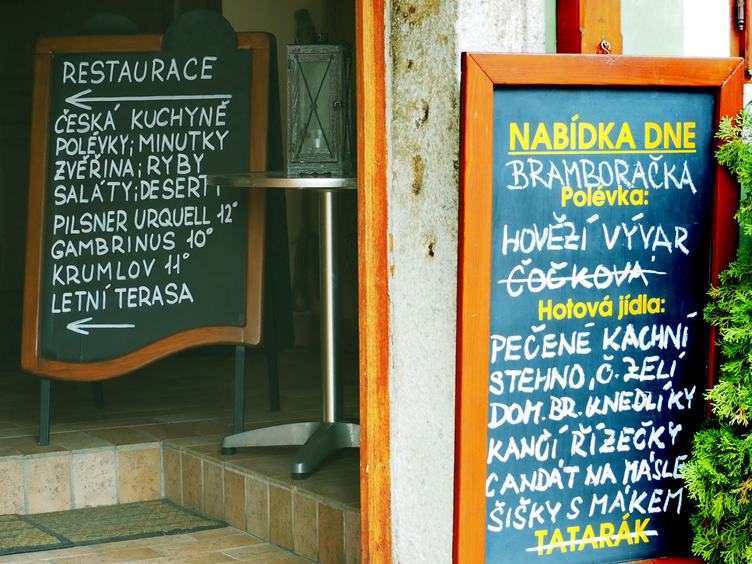 RESTAURACE
ČESKÁ KUCHYNĚ
POLÉVKY; MINUTKY
ZVĚŘINA; RYBY
SALÁTY; DESERTY
PILSNER URQUELL 12°
GAMBRINUS 10°
KRUMLOV 11°
LETNÍ TERASA
NABÍDKA DNE
BRAMBORAČKA
Polévka:
HOVĚZÍ VÝVAR
ČOČKOVÁ
Hotová jídla:
PEČENÉ KACHNÍ
STEHNO, Č. ZELÍ
DOM. BR. KNEDLÍKY
KANČÍ ŘÍZEČKY
CANDÁT NA MÁSLE
ŠIŠKY S MÁKEM
TATARÁK